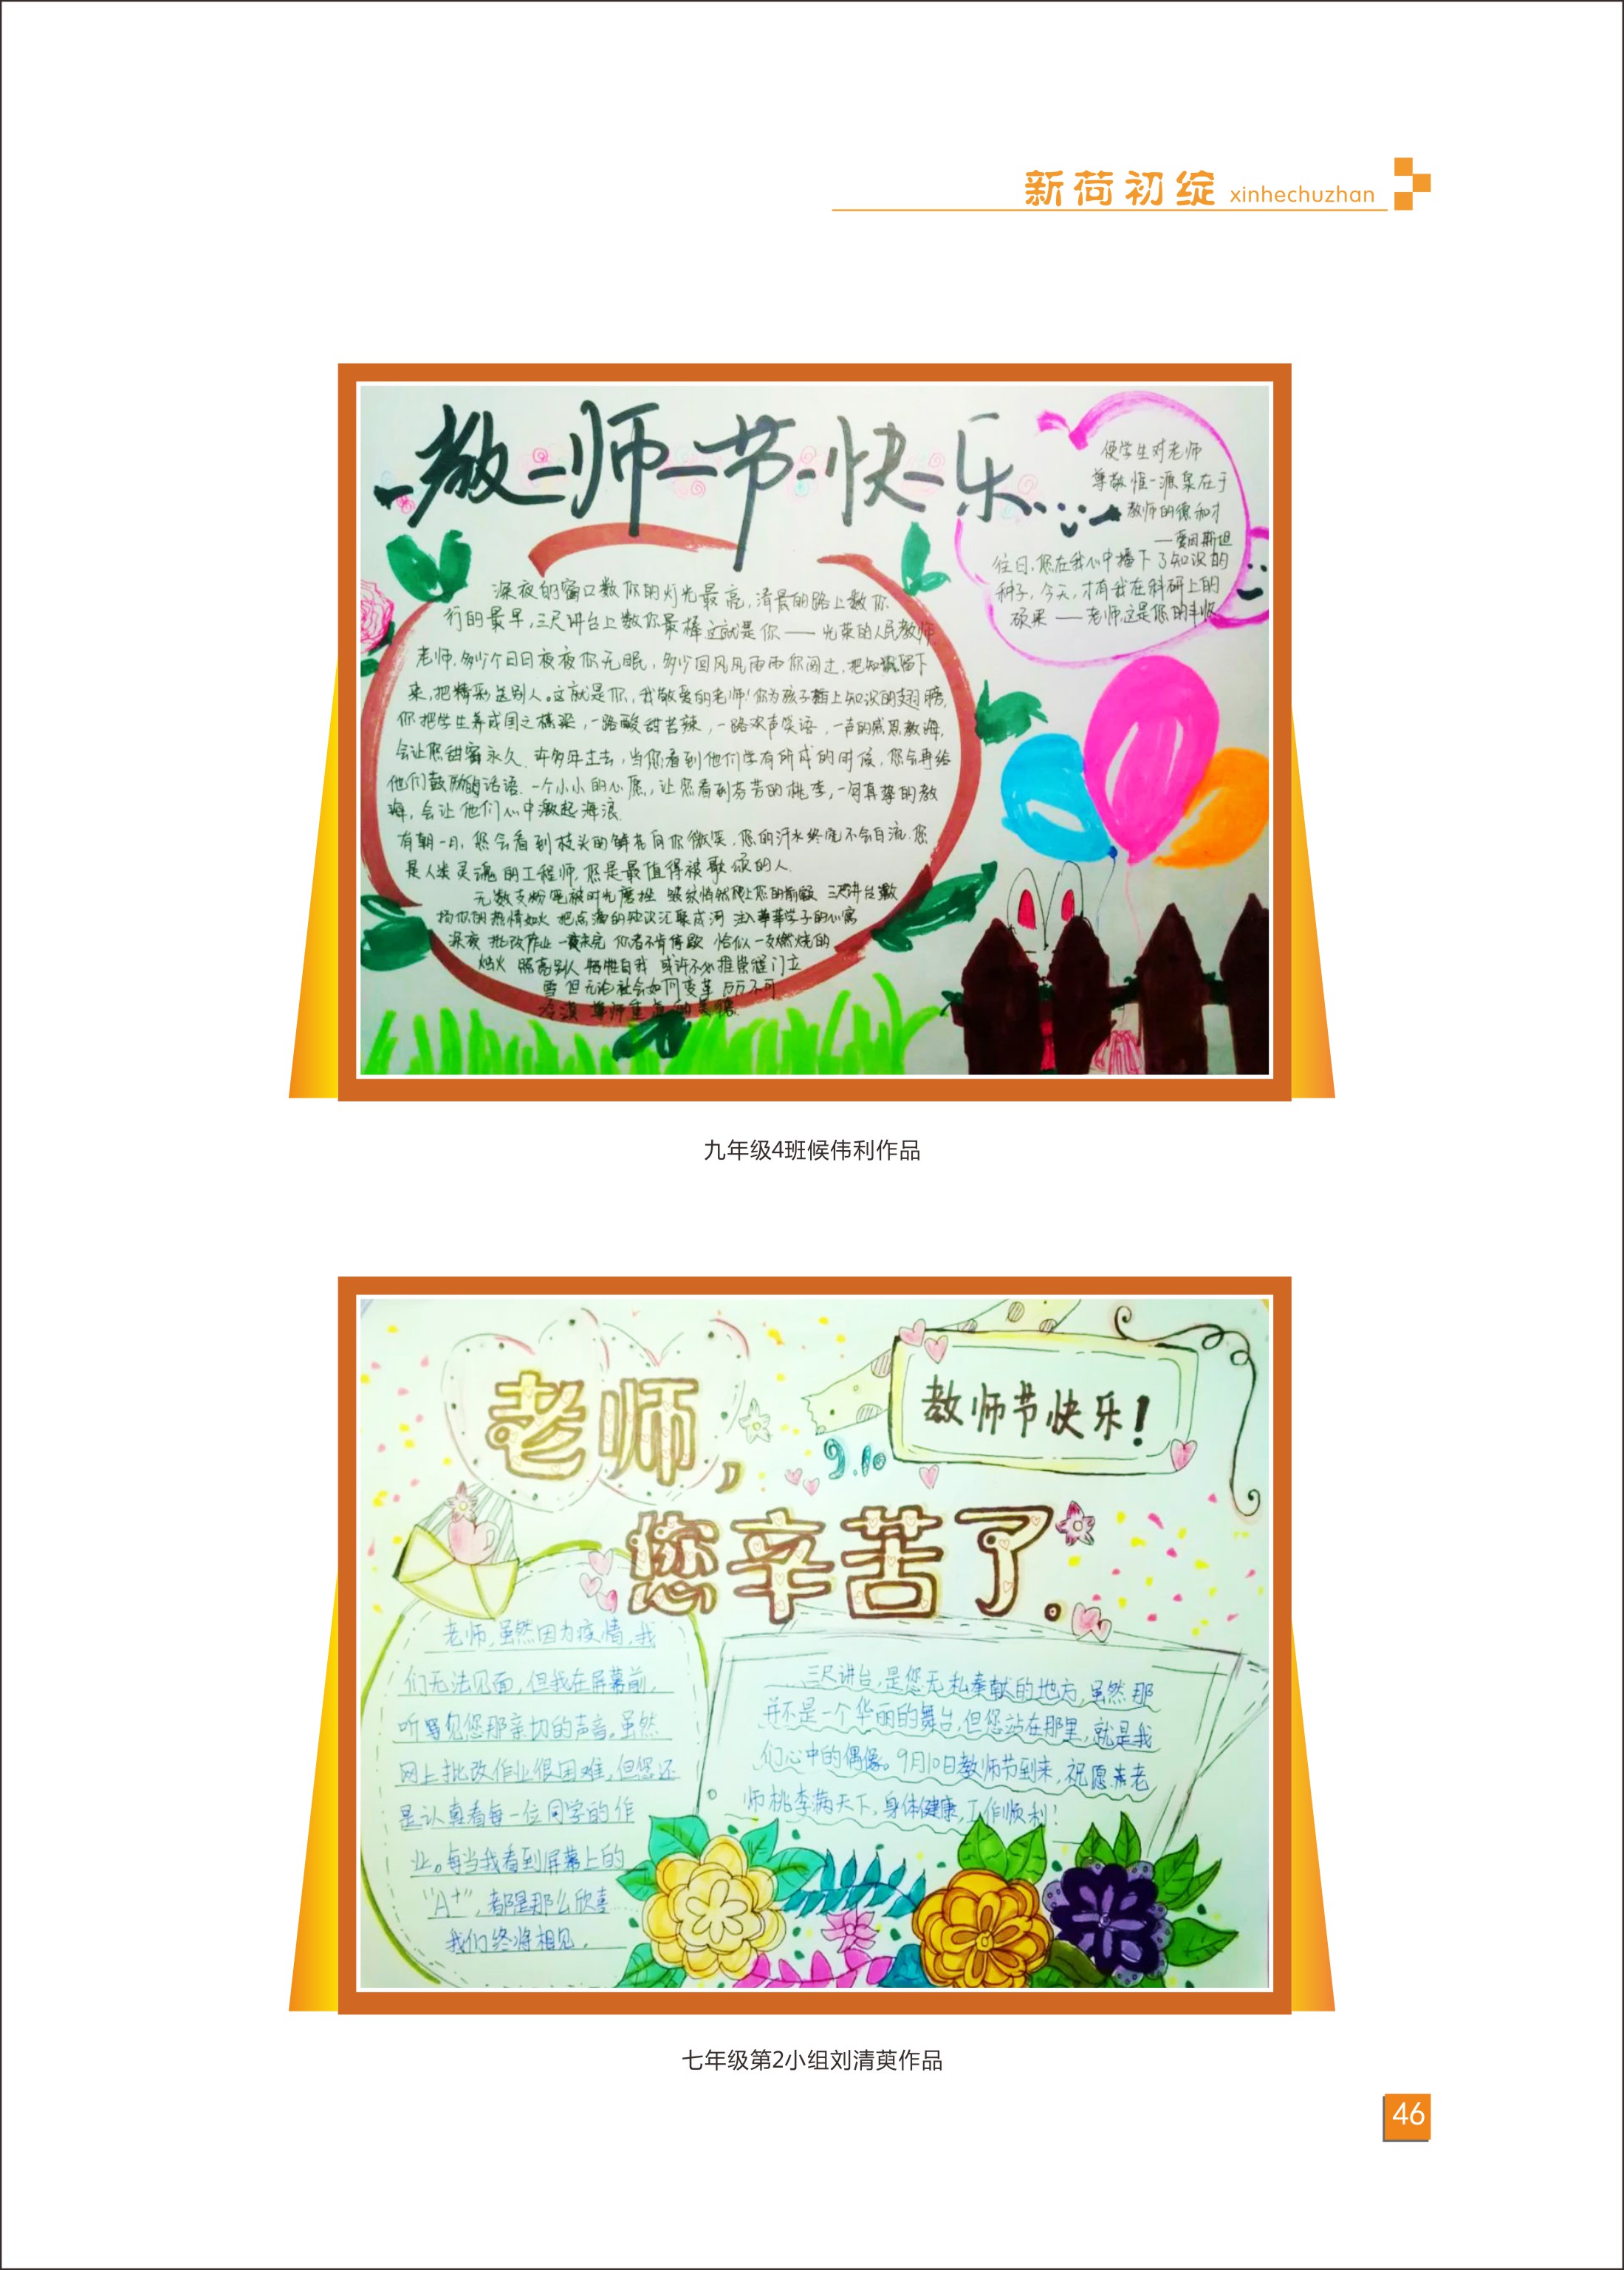 新荷初绽 xinhechuzhan
教师节快乐
使学生对老师
尊敬惟一源泉在于
教师的德和才
——爱因斯坦
往日,您在我心中播下了知识的
种子,今天,才有我在科研上的
硕果——老师,这是您的丰收
深夜的窗口数你的灯光最亮,清晨的路上数你
行的最早,三尺讲台上数你最棒这就是你——光荣的人民教师
老师,多少个日日夜夜你无眠,多少回风风雨雨你闯过,把知识留下
来,把精彩送别人。这就是你,我敬爱的老师!你为孩子插上知识的翅膀,
你把学生养成国之栋梁,一路酸甜苦辣,一路欢声笑语,一声的感恩教诲,
会让您甜蜜永久.许多年过去,当你看到他们学有所成的时候,您会再给
他们鼓励的话语.一个小小的心愿,让您看到芬芳的桃李,一句真挚的教
诲,会让他们心中激起海浪.
有朝一日,您会看到枝头的鲜花向你微笑.您的汗水终究不会白流.您
是人类灵魂的工程师,您是最值得被歌颂的人.
无数支粉笔被时光磨挫 皱纹悄然爬上您的前额 三尺讲台
你的热情如火 把点滴的知识汇聚成河 注入莘莘学子的心窝
深夜 批改作业 未完 你者不肯停歇 恰似一支燃烧的
烛火 照亮别人 牺牲自我 或许不必推崇程门立
雪 但无论社会如何变革 万万不可
尊师重
九年级4班候伟利作品
老师,
教师节快乐!
9.10
您辛苦了.
老师,虽然因为疫情,我
们无法见面,但我在屏幕前,
听见您那亲切的声音。虽然
网上批改作业很困难,但您还
是认真看每一位同学的作
业。每当我看到屏幕上的
“A+”,都是那么欣喜
我们终将相见.
三尺讲台,是您无私奉献的地方,虽然那
并不是一个华丽的舞台,但您站在那里,就是我
们心中的偶像。9月10日教师节到来,祝愿老
师桃李满天下,身体健康,工作顺利!
七年级第2小组刘清萸作品
46